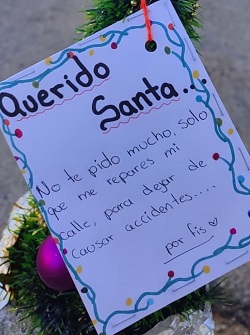 Querido
Santa...
No te pido mucho, solo
que me repares mi
calle, para dejar de
causar accidentes....
por fis